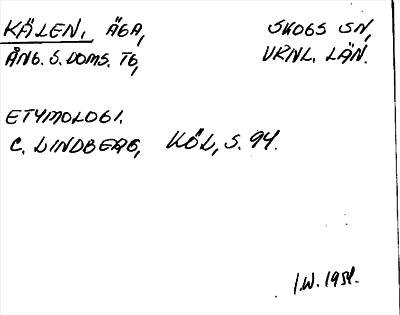 KÄLEN, ÄGA, SKOGS SN,
ÅNG. S. DOMS. TG, VRNL. LÄN.
ETYMOLOGI.
C. LINDBERG, KÖL, S. 94.
I.W. 1951.